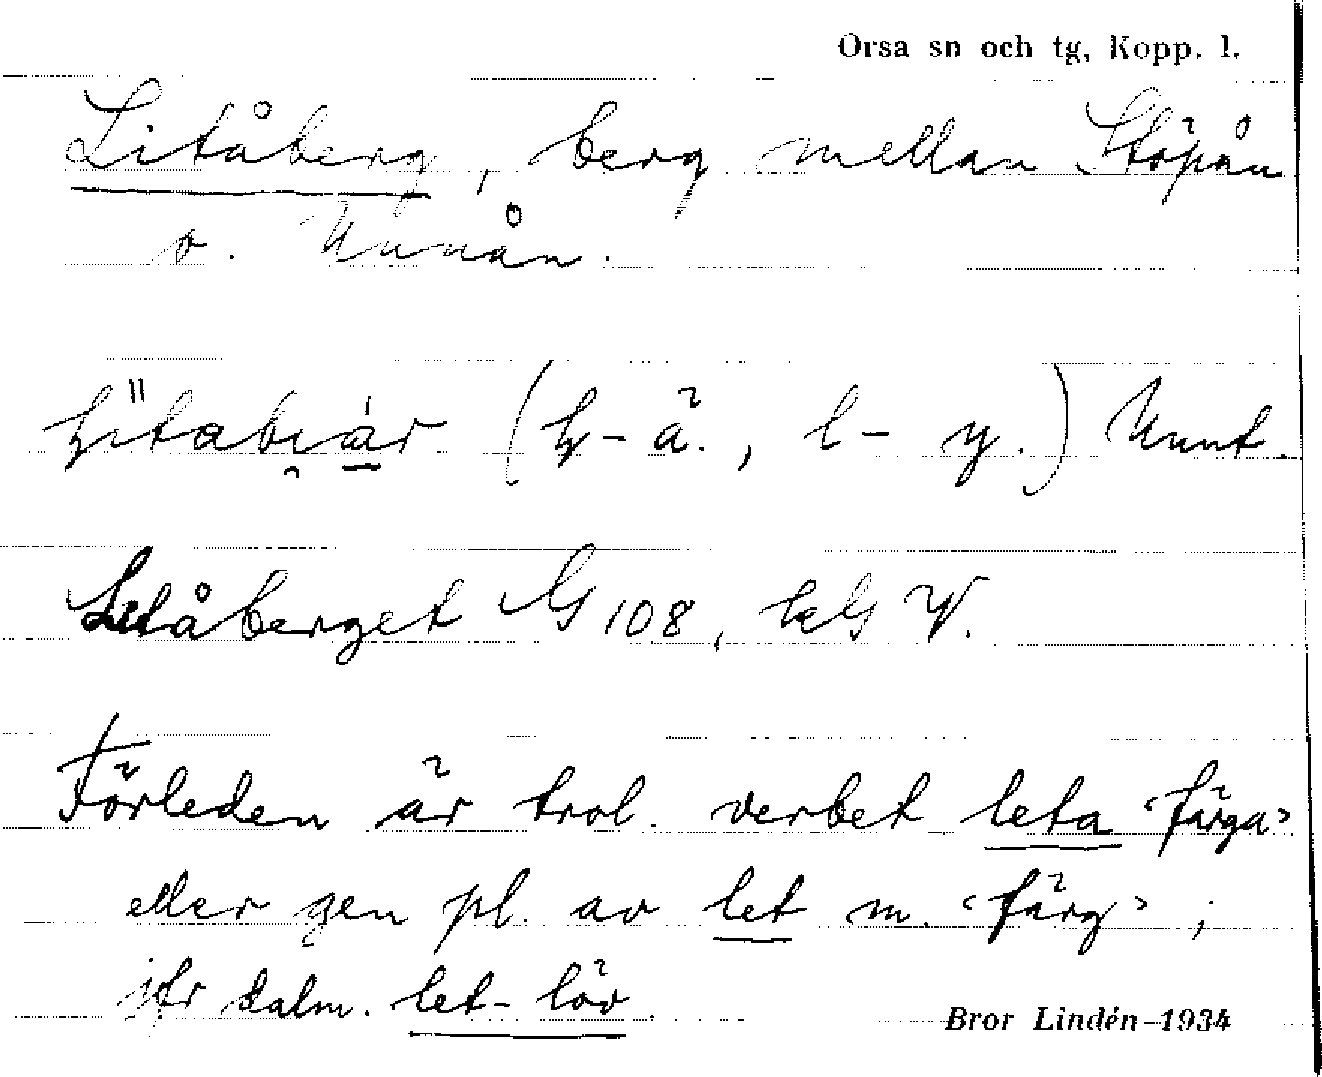 Orsa sn och tg, Kopp. l.
Litåberg, berg mellan Stöpån
o. Unnån.
(h-ä., l- y.) Unnt.
Letåberget G 108, kG V.
Förleden är trol. verbet leta ‹färga›
eller gen pl. av let m. ‹färg› ;
jfr dalm. let-löv.
Bror Lindén–1934